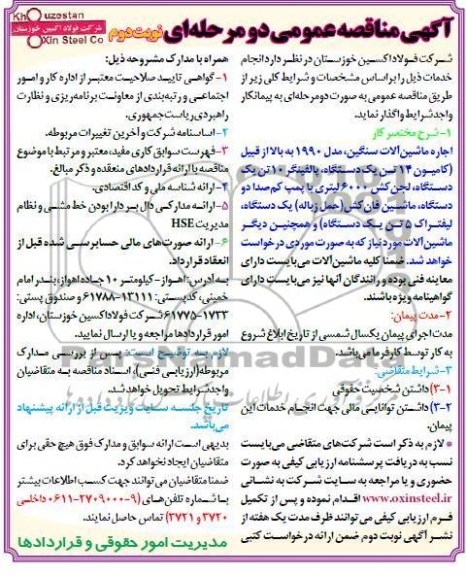 Khouzestan
شرکت فولاد اکسین خوزستان
Oxin Steel Co
آگهی مناقصه عمومی دو مرحله‌ای نوبت دوم
شرکت فولاد اکسین خوزستان در نظر دارد انجام
خدمات ذیل را براساس مشخصات و شرایط کلی زیر از
طریق مناقصه عمومی به صورت دو مرحله‌ای به پیمانکار
واجد شرایط واگذار نماید.
۱- شرح مختصر کار
اجاره ماشین‌آلات سنگین، مدل ۱۹۹۰ به بالا از قبیل
(کامیون ۱۴ تن یک دستگاه، بالفینگر ۱۰ تن یک
دستگاه، لجن کش ۶۰۰۰ لیتری با پمپ کم صدا دو
دستگاه، ماشین قان کش (حمل زباله) یک دستگاه،
لیفتراک ۵ تن یک دستگاه) و همچنین دیگر
ماشین‌آلات مورد نیاز که به صورت موردی درخواست
خواهد شد. ضمنا کلیه ماشین‌آلات می‌بایست دارای
معاینه فنی بوده و رانندگان آنها نیز می‌بایست دارای
گواهینامه ویژه باشند.
۲- مدت پیمان:
مدت اجرای پیمان یکسال شمسی از تاریخ ابلاغ شروع
به کار توسط کارفرما می‌باشد.
۳- شرایط متقاضی:
۳-۱) داشتن شخصیت حقوقی
۳-۲) داشتن توانایی مالی جهت انجام خدمات این
پیمان.
● لازم به ذکر است شرکت‌های متقاضی می‌بایست
نسبت به دریافت پرسشنامه ارزیابی کیفی به صورت
حضوری و یا مراجعه به سایت شرکت به نشانی
www.oxinsteel.ir اقدام نموده و پس از تکمیل
فرم ارزیابی کیفی می‌توانند ظرف مدت یک هفته از
نشر آگهی نوبت دوم ضمن ارائه درخواست کتبی
همراه با مدارک مشروحه ذیل:
۱- گواهی تایید صلاحیت معتبر از اداره کار و امور
اجتماعی و رتبه‌بندی از معاونت برنامه‌ریزی و نظارت
راهبردی ریاست جمهوری.
۲- اساسنامه شرکت و آخرین تغییرات مربوطه.
۳- فهرست سوابق کاری مفید، معتبر و مرتبط با موضوع
مناقصه با ارائه قراردادهای منعقده و ذکر مبالغ.
۴- ارائه شناسه ملی و کد اقتصادی.
۵- ارائه مدارکی دال بر دارا بودن خط مشی و نظام
مدیریت HSE
۶- ارائه صورت‌های مالی حسابرسی شده قبل از
انعقاد قرارداد.
به آدرس: اهواز- کیلومتر ۱۰ جاده اهواز، بندر امام
خمینی، کدپستی: ۱۳۱۱۱-۶۱۷۸۸ و صندوق پستی:
۱۷۳۳-۶۱۷۷۵ شرکت فولاد اکسین خوزستان، اداره
امور قراردادها مراجعه و یا ارسال نمایید.
لازم به توضیح است: پس از بررسی مدارک
مربوطه (ارزیابی فنی)، اسناد مناقصه به متقاضیان
واجد شرایط تحویل خواهد شد.
تاریخ جلسه سایت ویزیت قبل از ارائه پیشنهاد
می‌باشد.
بدیهی است ارائه سوابق و مدارک فوق هیچ حقی برای
متقاضیان ایجاد نخواهد کرد.
ضمنا متقاضیان می‌توانند جهت کسب اطلاعات بیشتر
با شماره تلفن‌های (۹-۲۷۰۹۰۰۰-۰۶۱۱ داخلی
۳۷۲۰ و ۳۷۲۱) تماس حاصل نمایند.
مدیریت امور حقوقی و قراردادها